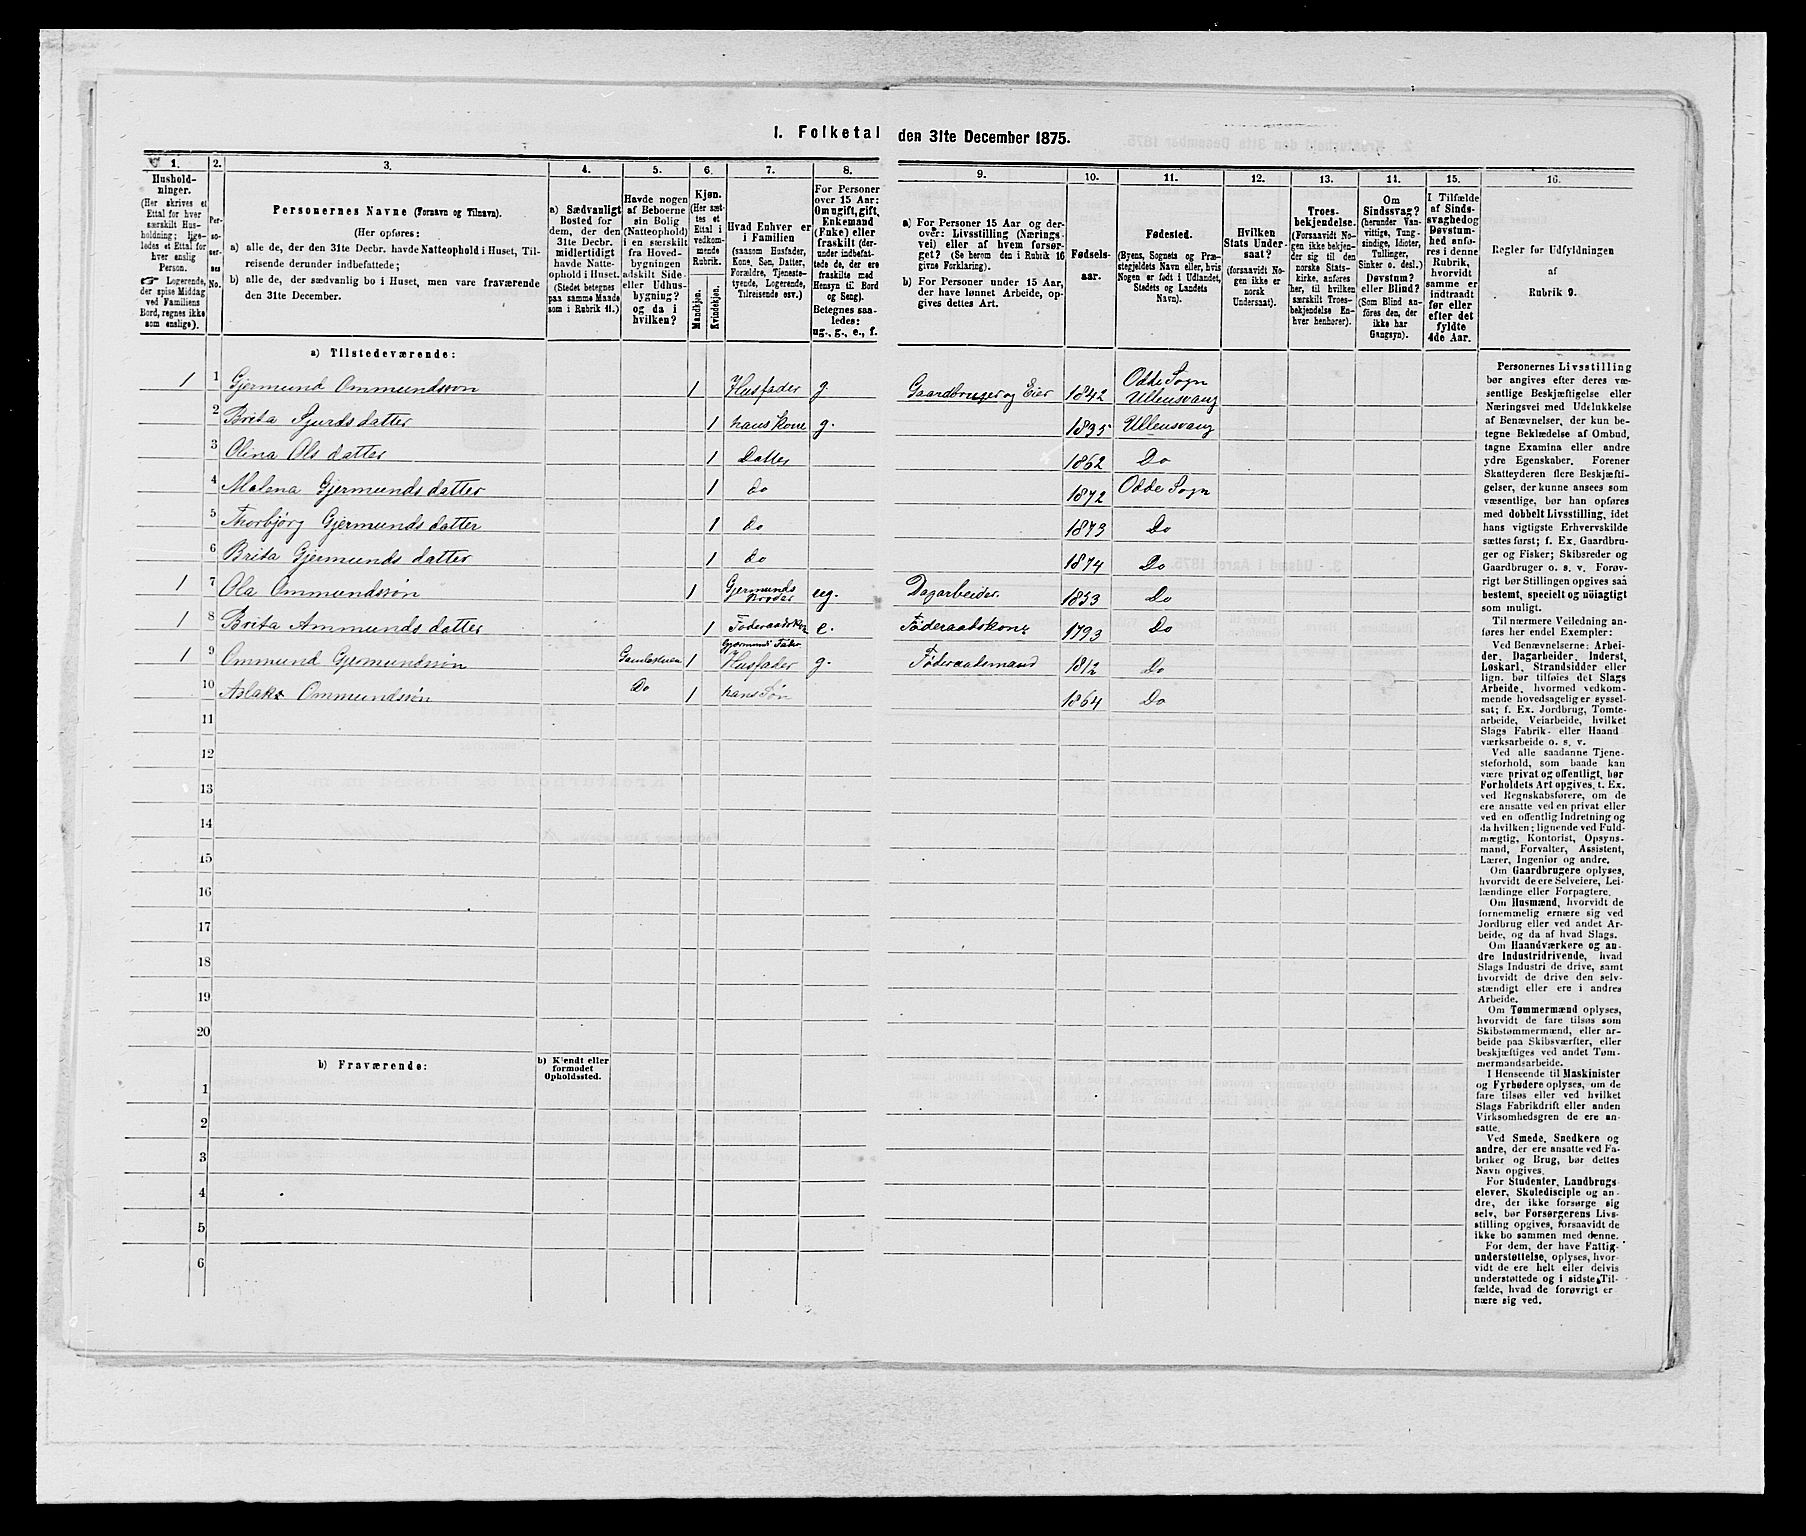 I. Folketal den 31te December 1875.
1. 2. 3. 4. 5. 6. 7. 8. 9. 10. 11. 12. 13. 14. 15. 16.
Hushold-
ninger.
(Her skrives et
Ettal for hver
særskilt Hus-
holdning; lige-
ledes et Ettal for
hver enslig
Person.
Logerende,
der spise Middag
ved Familiens
Bord, regnes ikke
som enslige).
Per-
so-
ner-
nes
No.
Personernes Navne (Fornavn og Tilnavn).
(Her opføres:
a) alle de, der den 31te Decbr. havde Natteophold i Huset, Til-
reisende derunder indbefattede;
b) alle de, der sædvanlig bo i Huset, men vare fraværende
den 31te December.
a) Sædvanligt
Bosted for
dem, der den
31te Decbr.
midlertidigt
havde Natte-
ophold i Huset.
(Stedet betegnes
paa samme Maade
som i Rubrik 11.)
Havde nogen
af Beboerne
sin Bolig
(Natteophold)
i en særskilt
fra Hoved-
bygningen
adskilt Side-
eller Udhus-
bygning?
og da i
hvilken?
Kjøn.
(Her sæt-
tes et
Ettal i
vedkom-
mende
Rubrik.
Mandkjøn.
Kvindekjøn.
Hvad Enhver er
i Familien
(saasom Husfader,
Kone, Søn, Datter,
Forældre, Tjeneste-
tyende, Logerende,
Tilreisende osv.)
For Personer
over 15 Aar:
Om ugift, gift,
Enkemand
(Enke) eller
fraskilt (der-
under indbefat-
tede de, der ere
fraskilte med
Hensyn til Bord
og Seng).
Betegnes saa-
ledes:
ug., g., e., f.
a) For Personer 15 Aar og der-
over: Livsstilling (Nærings-
vei) eller af hvem forsør-
get? (Se herom den i Rubrik 16
givne Forklaring).
b) For Personer under 15 Aar,
der have lønnet Arbeide, op-
gives dettes Art.
Fødsels-
aar.
Fødested.
(Byens, Sognets og Præ-
stegjeldets Navn eller, hvis
Nogen er født i Udlandet,
Stedets og Landets
Navn).
Hvilken
Stats Under-
saat?
(forsaavidt No-
gen ikke er
norsk
Undersaat).
Troes-
bekjendelse.
(Forsaavidt No-
gen ikke bekjen-
der sig til den
norske Stats-
kirke, anføres
her, til hvilken
særskilt Troes-
bekjendelse En-
hver henhører).
Om
Sindssvag?
(herunder Van-
vittige, Tung-
sindige, Idioter,
Tullinger,
Sinker o. desl.)
Døvstum?
eller Blind?
(Som Blind an-
føres den, der
ikke har
Gangsyn).
I Tilfælde
af Sinds-
svaghed og
Døvstum-
hed anfø-
res i denne
Rubrik,
hvorvidt
samme er
indtraadt
før eller
efter det
fyldte
4de Aar.
Regler for Udfyldningen
af
Rubrik 9.
a) Tilstedeværende:
1 1 Gjermund Ommundssøn 1 Husfader g Gaardbruger og Eier 1842 Odde Sogn Ullensvang
2 Brita Sjurdsdatter 1 hans Kone g. 1835 Ullensvang
3 Olina Olsdatter 1 Datter 1862 Do
4 Malena Gjermundsdatter 1 do 1872 Odde Sogn
5 Thorbjørg Gjermundsdatter 1 do 1873 Do
6 Brita Gjermundsdatter 1 do 1874 Do
1 7 Ola Ommundssøn 1 Gjermunds Broder ug. Dagarbeider 1853 Do
1 8 Brita Ammundsdatter 1 Føderaadskone e. Føderaadskone 1793 Do
1 9 Ommund Gjermundssøn Gamlestuen 1 Gjermunds Fader Husfader g. Føderaadsmand 1812 Do
10 Aslak Ommundssøn Do 1 hans Søn 1864 Do
11
12
13
14
15
16
17
18
19
20
b) Fraværende: b) Kjendt eller
formodet
Opholdssted.
1
2
3
4
5
6
Personernes Livsstilling
bør angives efter deres væ-
sentlige Beskjæftigelse eller
Næringsvei med Udelukkelse
af Benævnelser, der kun be-
tegne Beklædelse af Ombud,
tagne Examina eller andre
ydre Egenskaber. Forener
Skatteyderen flere Beskjæfti-
gelser, der kunne ansees som
væsentlige, bør han opføres
med dobbelt Livsstilling, idet
hans vigtigste Erhvervskilde
sættes først; f. Ex. Gaardbru-
ger og Fisker; Skibsreder og
Gaardbruger o. s. v. Forøv-
rigt bør Stillingen opgives saa
bestemt, specielt og nøiagtigt
som muligt.
Til nærmere Veiledning an-
føres her endel Exempler:
Ved Benævnelserne: Arbei-
der, Dagarbeider, Inderst,
Løskarl, Strandsidder eller
lign. bør tilføies det Slags
Arbeide, hvormed vedkom-
mende hovedsagelig er syssel-
sat; f. Ex. Jordbrug, Tomte-
arbeide, Veiarbeide, hvilket
Slags Fabrik- eller Haand-
værksarbeide o. s. v.
Ved alle saadanne Tjene-
steforhold, som baade kan
være privat og offentligt, bør
Forholdets Art opgives, t. Ex.
ved Regnskabsførere, om de
ere ansatte ved en privat eller
ved en offentlig Indretning og
da hvilken; lignende ved Fuld-
mægtig, Kontorist, Opsyns-
mand, Forvalter, Assistent,
Lærer, Ingeniør og andre.
Om Gaardbrugere oplyses,
hvorvidt de ere Selveiere, Lei-
lændinge eller Forpagtere.
Om Husmænd, hvorvidt de
fornemmelig ernære sig ved
Jordbrug eller ved andet Ar-
beide, og da af hvad Slags.
Om Haandværkere og an-
dre Industridrivende, hvad
Slags Industri de drive, samt
hvorvidt de drive den selv-
stændigt eller ere i andres
Arbeide.
Om Tømmermænd oplyses,
hvorvidt de fare tilsøs som
Skibstømmermænd, eller ar-
beide paa Skibsværfter, eller
beskjæftiges ved andet Tøm-
mermandsarbeide.
I Henseende til Maskinister
og Fyrbødere oplyses, om de
fare tilsøs eller ved hvilket
Slags Fabrikdrift eller anden
Virksomhedsgren de ere an-
satte.
Ved Smede, Snedkere og
andre, der ere ansatte ved Fa-
briker og Brug, bør dettes
Navn opgives.
For Studenter, Landbrugs-
elever, Skoledisciple og an-
dre, der ikke forsørge sig
selv, bør Forsørgerens Livs-
stilling opgives, forsaavidt de
ikke bo sammen med denne.
For dem, der have Fattig-
understøttelse, oplyses, hvor-
vidt de ere helt eller delvis
understøttede og i sidste Til-
fælde, hvad de forøvrigt er
nære sig ved.